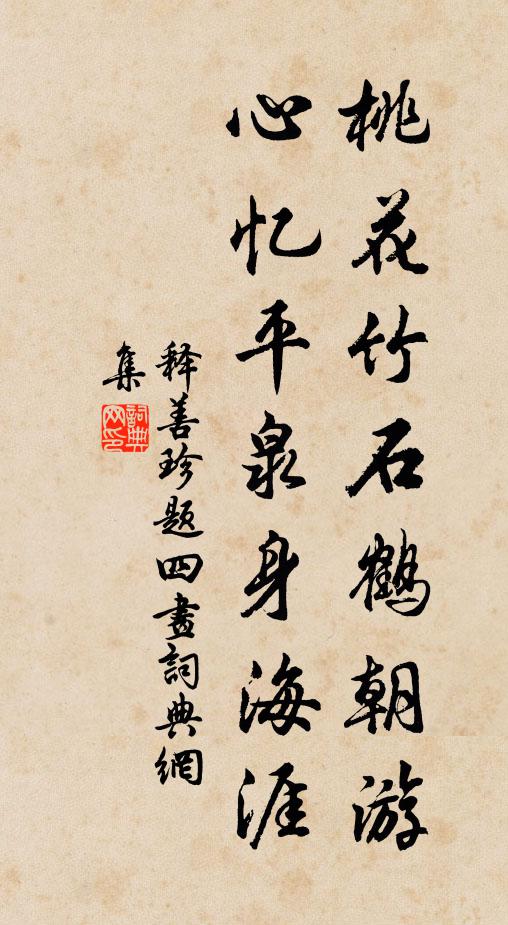 桃花竹石鹤朝游
心忆平泉身海涯
释善珍题四畫詞典網
集
詞典
网印